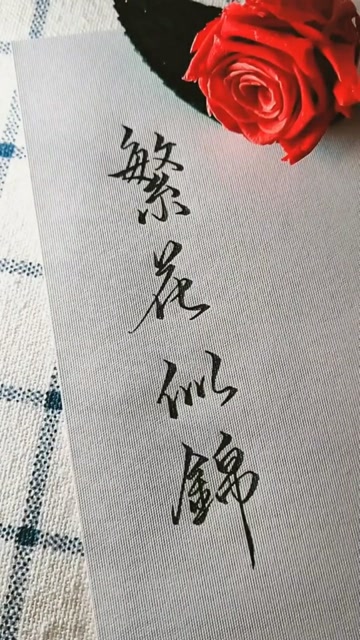 繁花似錦